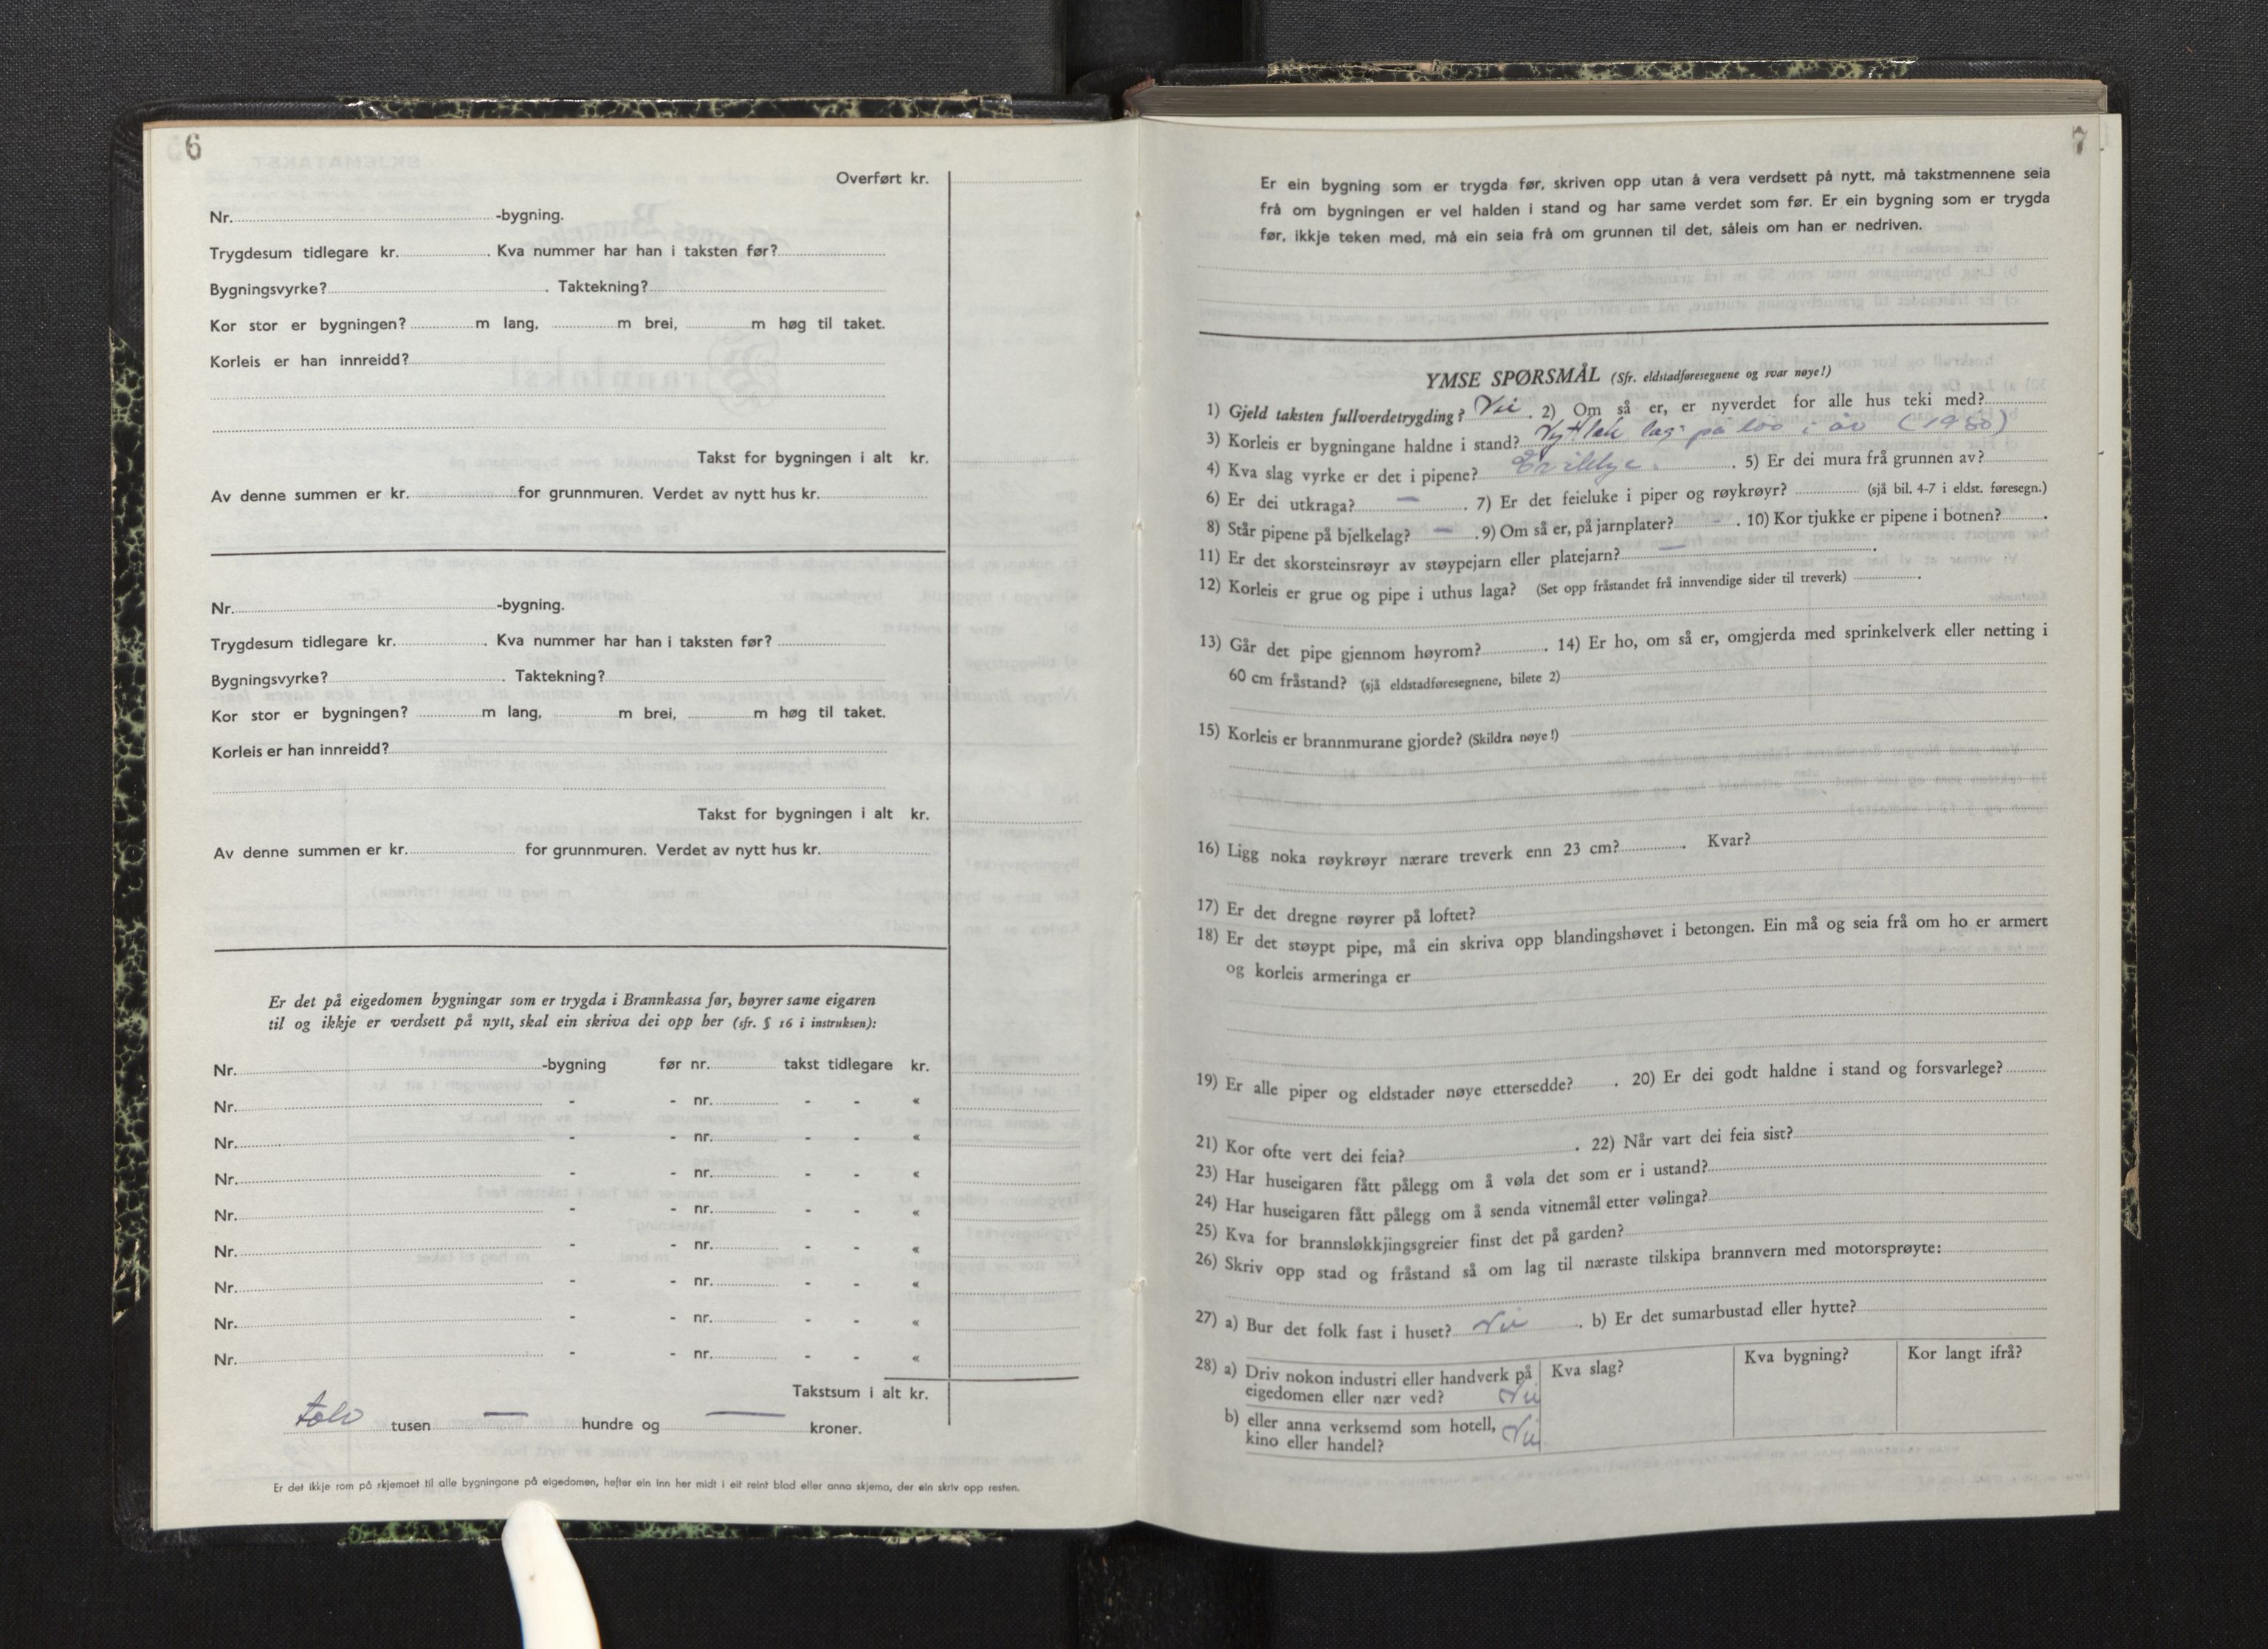 6
Overført kr.
Nr. -bygning.
Trygdesum tidlegare kr. . Kva nummer har han i taksten før?
Bygningsvyrke? . Taktekning?
Kor stor er bygningen? m lang, m brei, m høg til taket.
Korleis er han innreidd?
Takst for bygningen i alt kr.
Av denne summen er kr. for grunnmuren. Verdet av nytt hus kr.
Nr. -bygning.
Trygdesum tidlegare kr. . Kva nummer har han i taksten før?
Bygningsvyrke? . Taktekning?
Kor stor er bygningen? m lang, m brei, m høg til taket.
Korleis er han innreidd?
Takst for bygningen i alt kr.
Av denne summen er kr. for grunnmuren. Verdet av nytt hus kr.
Er det på eigedomen bygningar som er trygda i Brannkassa før, høyrer same eigaren
til og ikkje er verdsett på nytt, skal ein skriva dei opp her (sfr. § 16 i instruksen):
Nr. -bygning før nr. takst tidlegare kr.
Nr. - - nr. - - «
Nr. - - nr. - - «
Nr. - - nr. - - «
Nr. - - nr. - - «
Nr. - - nr. - - «
Nr. - - nr. - - «
Nr. - - nr. - - «
Nr. - - nr. - - «
Takstsum i alt kr.
tolv tusen — hundre og — kroner.
Er det ikkje rom på skjemaet til alle bygningane på eigedomen, hefter ein inn her midt i eit reint blad eller anna skjema, der ein skriv opp resten.
7
Er ein bygning som er trygda før, skriven opp utan å vera verdsett på nytt, må takstmennene seia
frå om bygningen er vel halden i stand og har same verdet som før. Er ein bygning som er trygda
før, ikkje teken med, må ein seia frå om grunnen til det, såleis om han er nedriven.
YMSE SPØRSMÅL (Sfr. eldstadføresegnene og svar nøye!)
1) Gjeld taksten fullverdetrygding? Nei . 2) Om så er, er nyverdet for alle hus teki med?
3) Korleis er bygningane haldne i stand? på løo i år
4) Kva slag vyrke er det i pipene? . 5) Er dei mura frå grunnen av?
6) Er dei utkraga? — . 7) Er det feieluke i piper og røykrøyr? (sjå bil. 4-7 i eldst. føresegn.)
8) Står pipene på bjelkelag? — . 9) Om så er, på jarnplater? - . 10) Kor tjukke er pipene i botnen? .
11) Er det skorsteinsrøyr av støypejarn eller platejarn? — .
12) Korleis er grue og pipe i uthus laga? (Set opp fråstandet frå innvendige sider til treverk) .
13) Går det pipe gjennom høyrom? . 14) Er ho, om så er, omgjerda med sprinkelverk eller netting i
60 cm fråstand? (sjå eldstadføresegnene, bilete 2)
15) Korleis er brannmurane gjorde? (Skildra nøye!)
16) Ligg noka røykrøyr nærare treverk enn 23 cm? . Kvar?
17) Er det dregne røyrer på loftet?
18) Er det støypt pipe, må ein skriva opp blandingshøvet i betongen. Ein må og seia frå om ho er armert
og korleis armeringa er
19) Er alle piper og eldstader nøye ettersedde? . 20) Er dei godt haldne i stand og forsvarlege?
21) Kor ofte vert dei feia? . 22) Når vart dei feia sist?
23) Har huseigaren fått pålegg om å vøla det som er i ustand?
24) Har huseigaren fått pålegg om å senda vitnemål etter vølinga?
25) Kva for brannsløkkjingsgreier finst det på garden?
26) Skriv opp stad og fråstand så om lag til næraste tilskipa brannvern med motorsprøyte:
27) a) Bur det folk fast i huset? Nei . b) Er det sumarbustad eller hytte?
28) a) Driv nokon industri eller handverk på Kva slag? Kva bygning? Kor langt ifrå?
eigedomen eller nær ved? Nei
b) eller anna verksemd som hotell, Nei
kino eller handel?